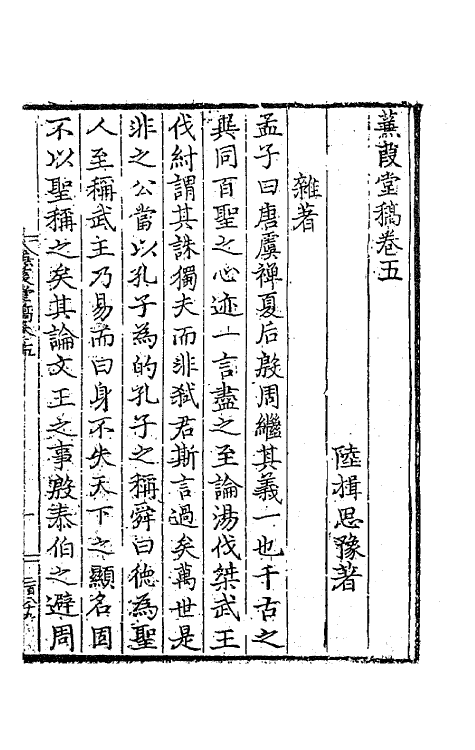 蒹葭堂稿卷五
陸楫思豫著
雜著
孟子曰唐虞禪夏后殷周繼其義一也千古之
興同百聖之心迹一言盡之至論湯伐桀武王
伐紂謂其誅獨夫而非弒君斯言過矣萬世是
非之公當以孔子為的孔子之稱舜曰德為聖
人至稱武王乃易而曰身不失天下之顯名固
不以聖稱之矣其論文王之事殷泰伯之避周